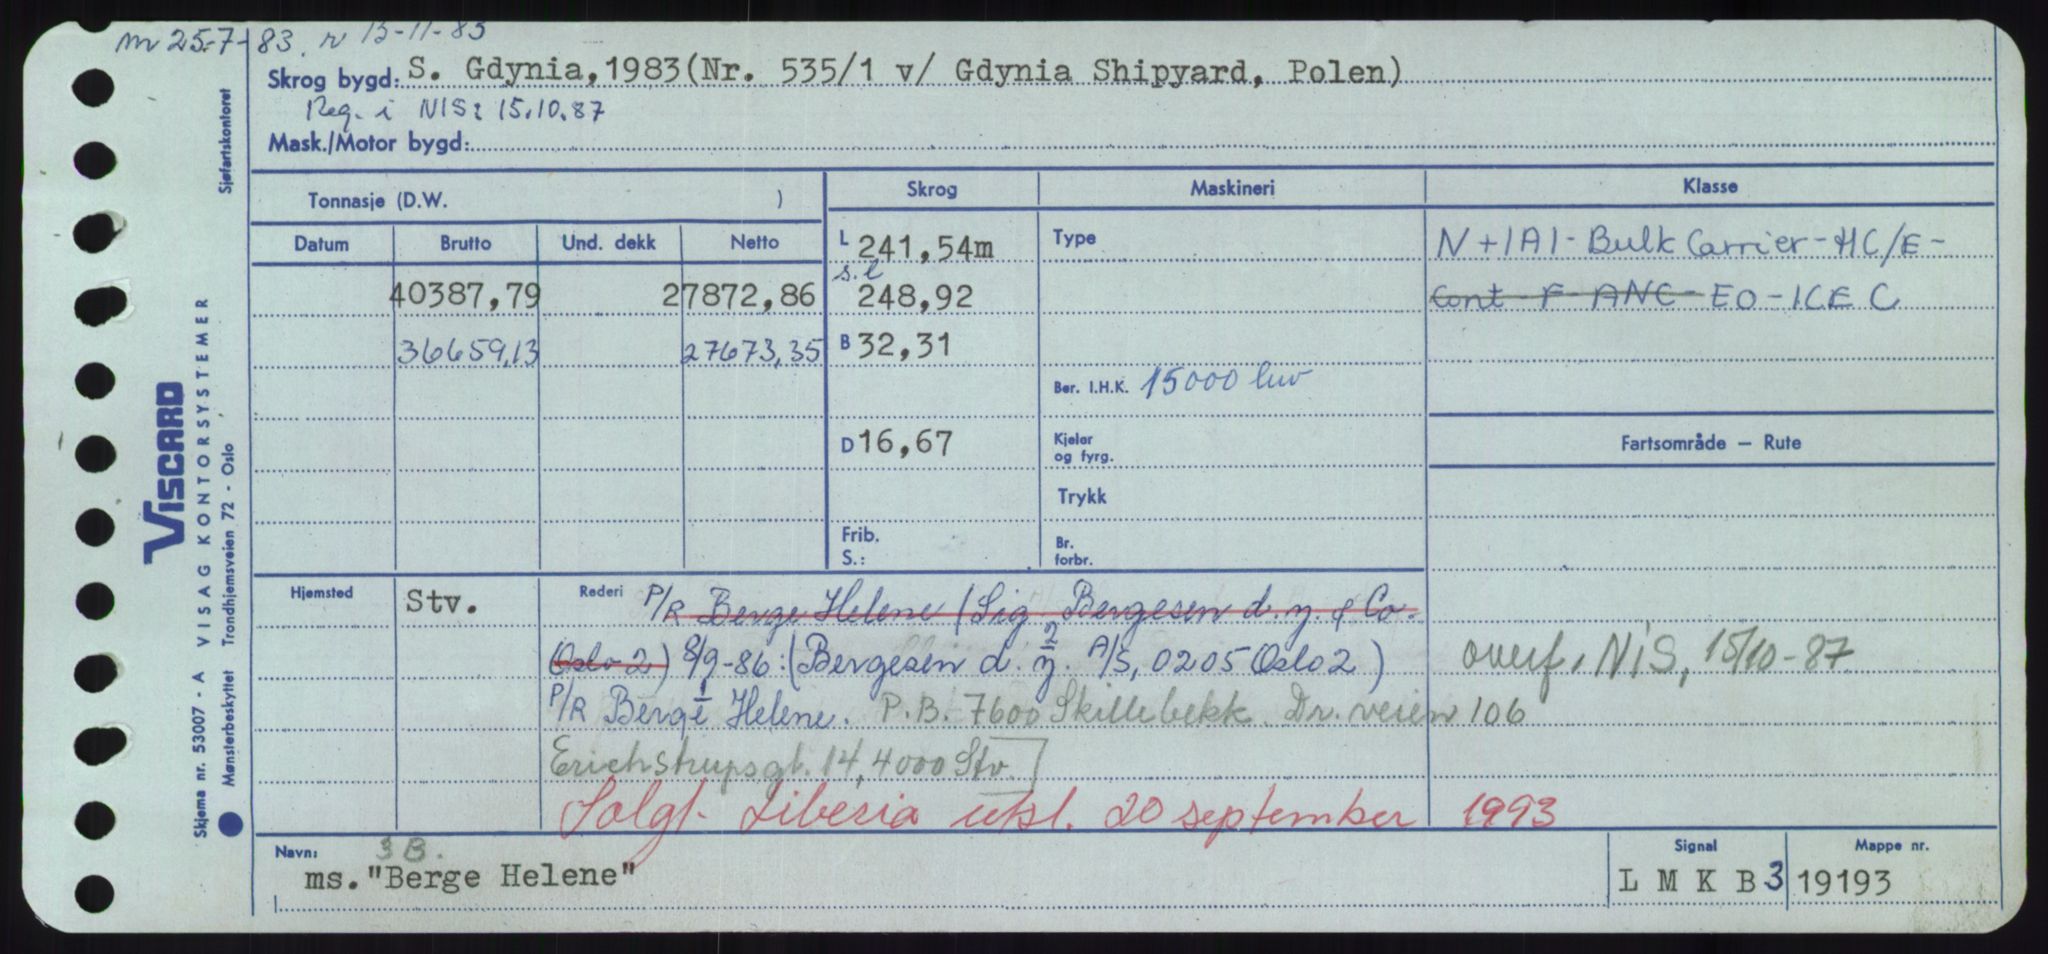 m 25-7-83. r 15-11-83
Skrog bygd: S. Gdynia,1983(Nr. 535/1 v/ Gdynia Shipyard, Polen)
Reg. i NIS: 15.10.87
Mask./Motor bygd:
Tonnasje (D.W. )
Skrog
Maskineri
Klasse
Datum Brutto Und. dekk Netto
L 241,54m
Type
N+1A1-Bulk Carrier-HC/E-
40387,79 27872,86
s.l 248,92
Cont F ANC- EO-ICE C
36659,13 27673,35
B 32,31
Ber. I.H.K. 15000
D 16,67
Kjeler
og fyrg.
Fartsområde — Rute
Trykk
Frib.
S.:
Br.
forbr.
Hjemsted Stv.
Rederi P/R Berge Helene (Sig. Bergesen d.y. & Co.
Oslo 2) 8/9-86: (Bergesen d. y. A/S, 0205 Oslo 2)
2
overf. NIS, 15/10-87
1
P/R Berge Helene. P.B. 7600 Skillebekk Dr. veien 106
Erichstrupsgt. 14, 4000 Stv.
Solgt Liberia utsl. 20 september 1993
Navn: 3B.
ms."Berge Helene"
Signal
L M K B 3
Mappe nr.
19193
Sjøfartskontoret
VISCARD
Skjema nr. 53007 - A VISAG KONTORSYSTEMER
Mønsterbeskyttet Trondhjemsveien 72 - Oslo